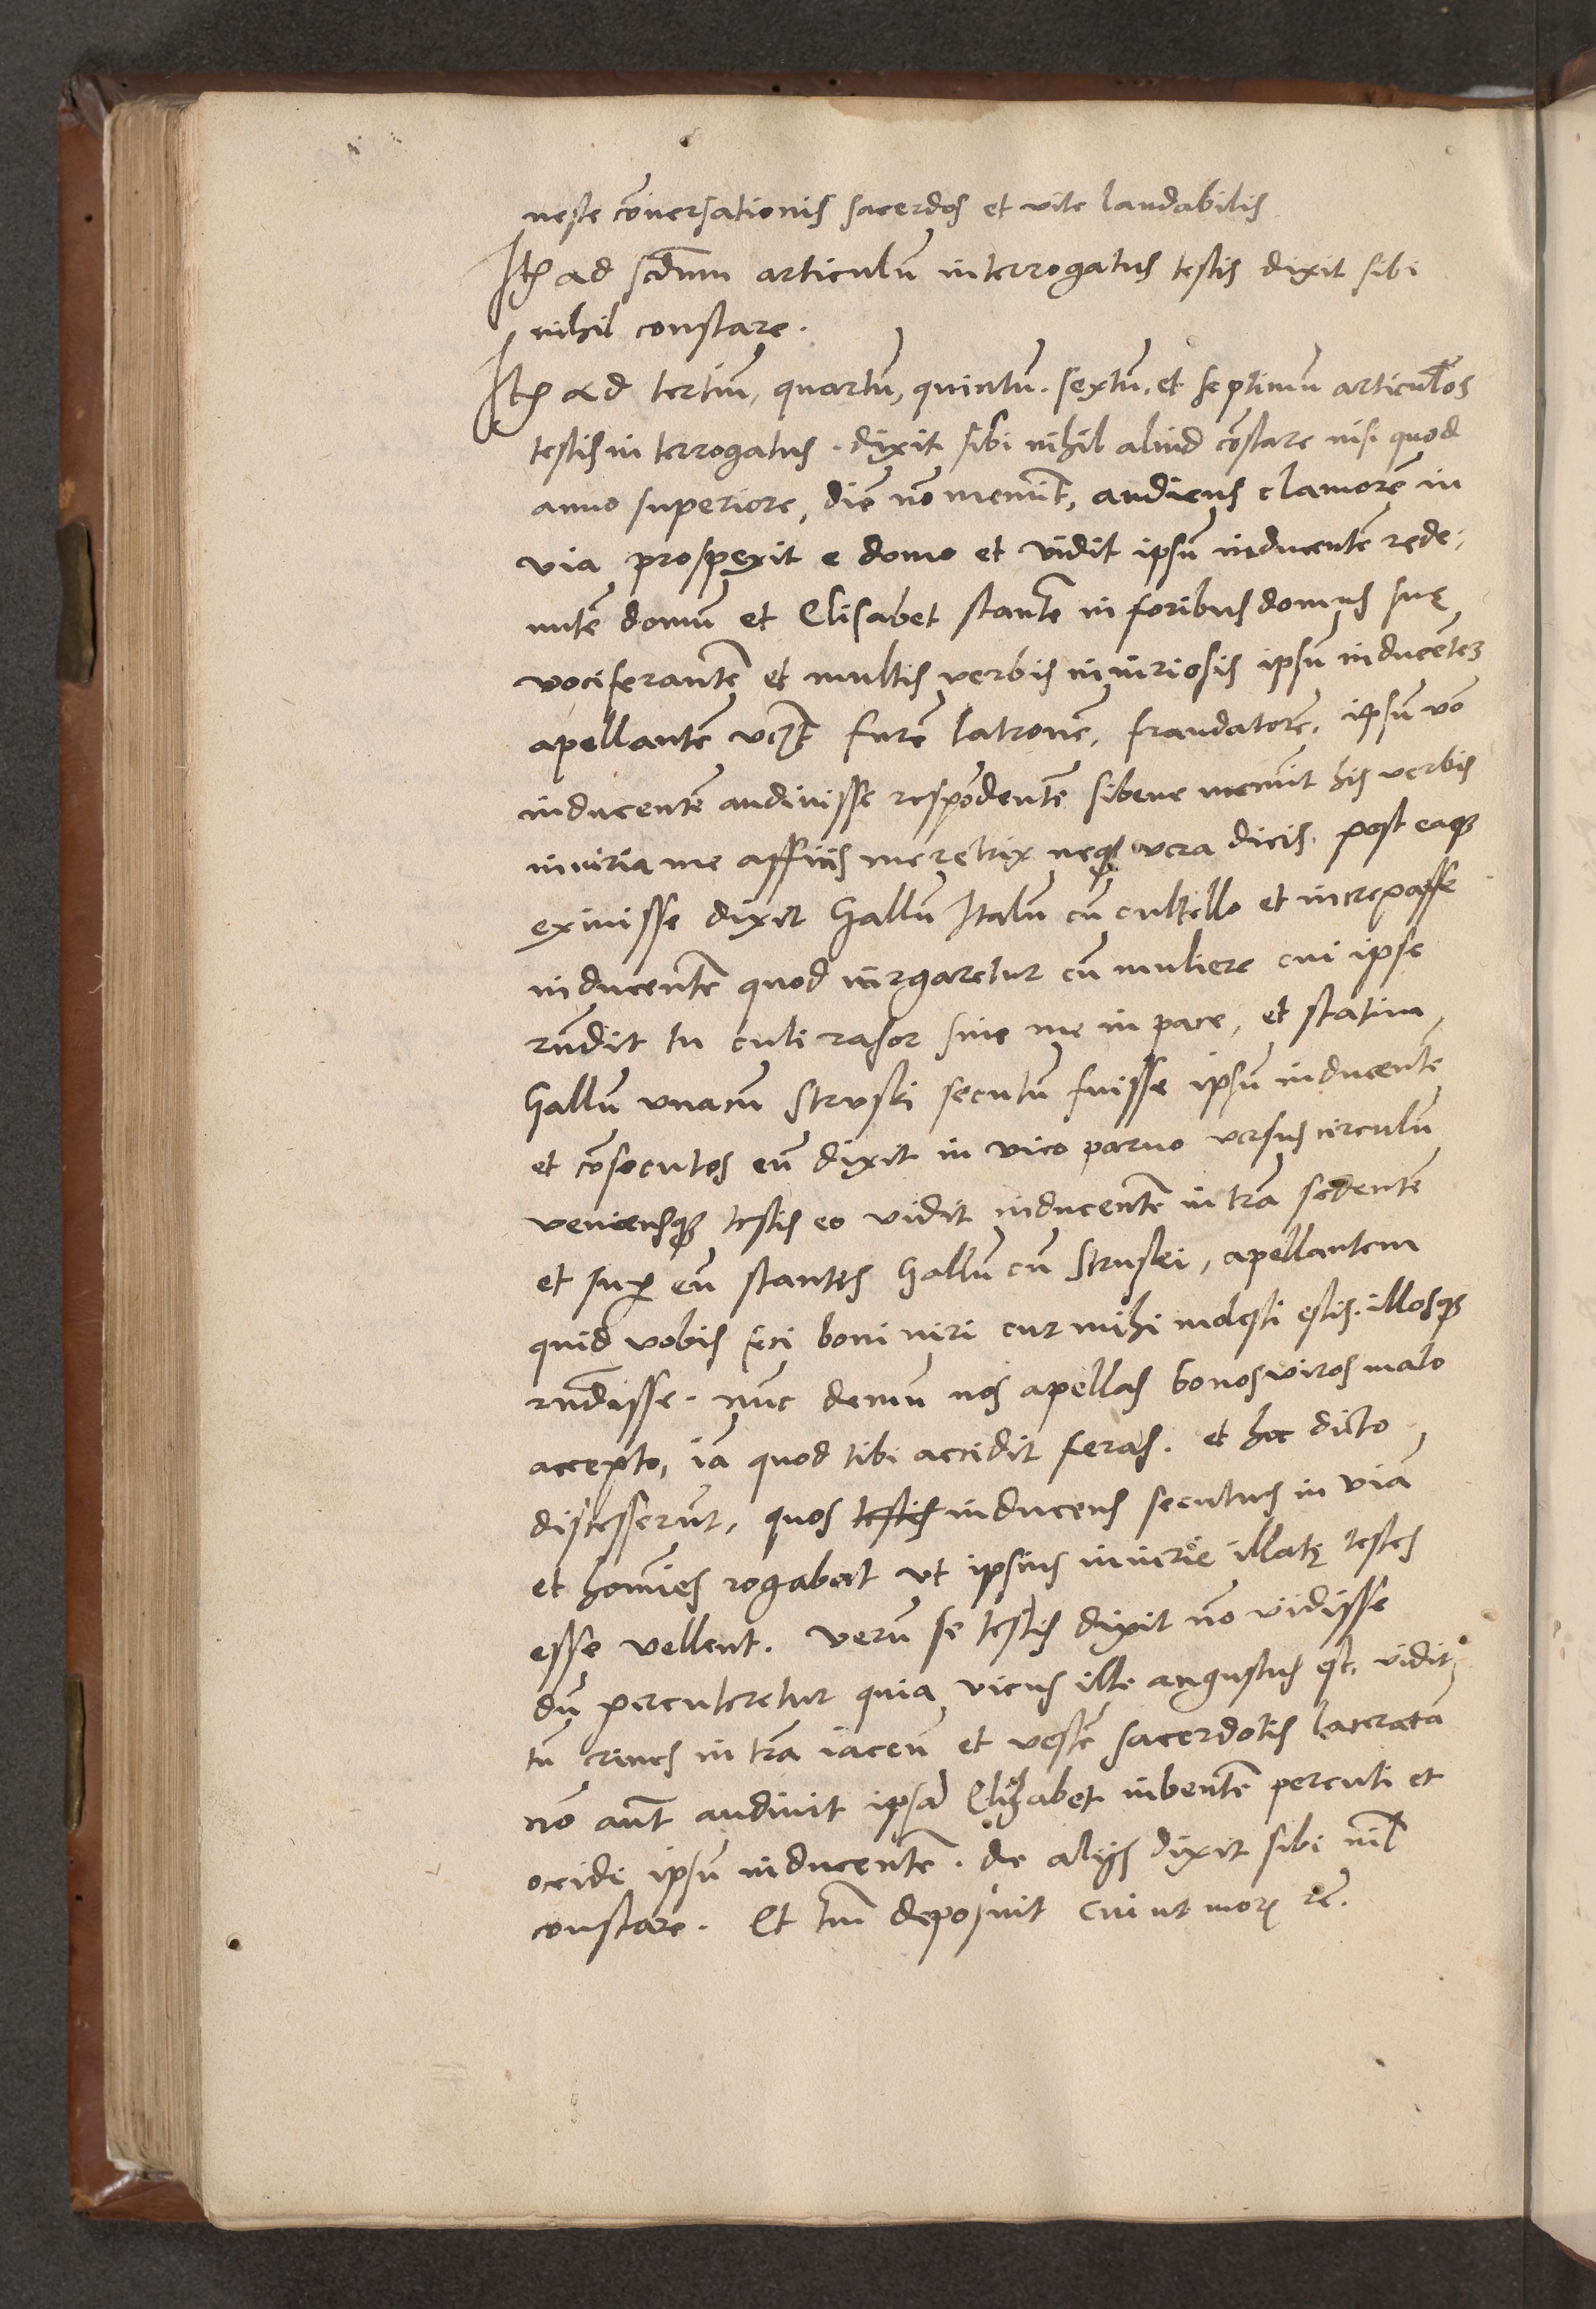 neste cōnersationis sacerdos et vite laudabilis
Itē ad scdūm articulū interrogatus testis dixit sibi
nihil constare.
Itē ad tertiū, quartū, quintū. sextū. et septimū articulos
testis interrogatus. dixit sibi nihil aliud cōstare nisi quod
anno superiore, diē nō meminit, audiens clamorē in
via prospexit e domo et vidit ipsū inducentē rede,
untē domū et Elisabet stantē in foribus domus suę
vociferantē et multis verbis iniuriosis ipsū inducētem
apellantē vczt furē latronē, fraudatorē, ipsū vō
inducentē audiuisse respōdentē si bene meminit his verbis
iniuria me afficis meretrix neqꝫ vera dicis. post eaqꝫ
exiuisse dixit Gallū Italū cū cultello et increpasse
inducentē quod iurgaretur cū muliere cui ipse
rn̄dit tu culi rasor sine me in pace, et statim
Gallū vnacū Struski secutū fuisse ipsū inducentē
et cōsecutos eū dixit in vico paruo versus circulū
veniensqꝫ testis eo vidit inducentē in trā sedentē
et sup eū stantes Gallū cū Struski, apellantem
quid vobis feci boni viri cur mihi molesti estis. illosqꝫ
rn̄disse. nūc demū nos apellas bonos viros malo
accepto, iā quod tibi accidit feras. et hoc dicto
discesserūt, quos testis inducens secutus in viā
et homīes rogabat vt ipsius iniurie illatę testes
esse vellent. verū se testis dixit nō vidisse
dū percuteretur quia vicus ille angustus est, vidit
tū crines in trā iacen̄ et vestē sacerdotis laceratā
nō aūt audiuit ipsā Elizabet iubentē percuti et
occidi ipsū inducentē. de alijs dixit sibi nīl
constare. Et tm̄ deposuit cui ut mor rc̄.